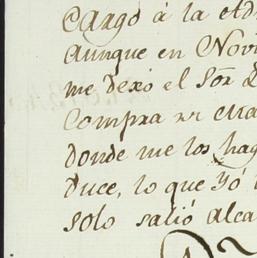 cargo à la Adm
aunque en Novi
me dexo el Sor D
Compra
donde me los hag
duce, lo que Yó
solo salió alca